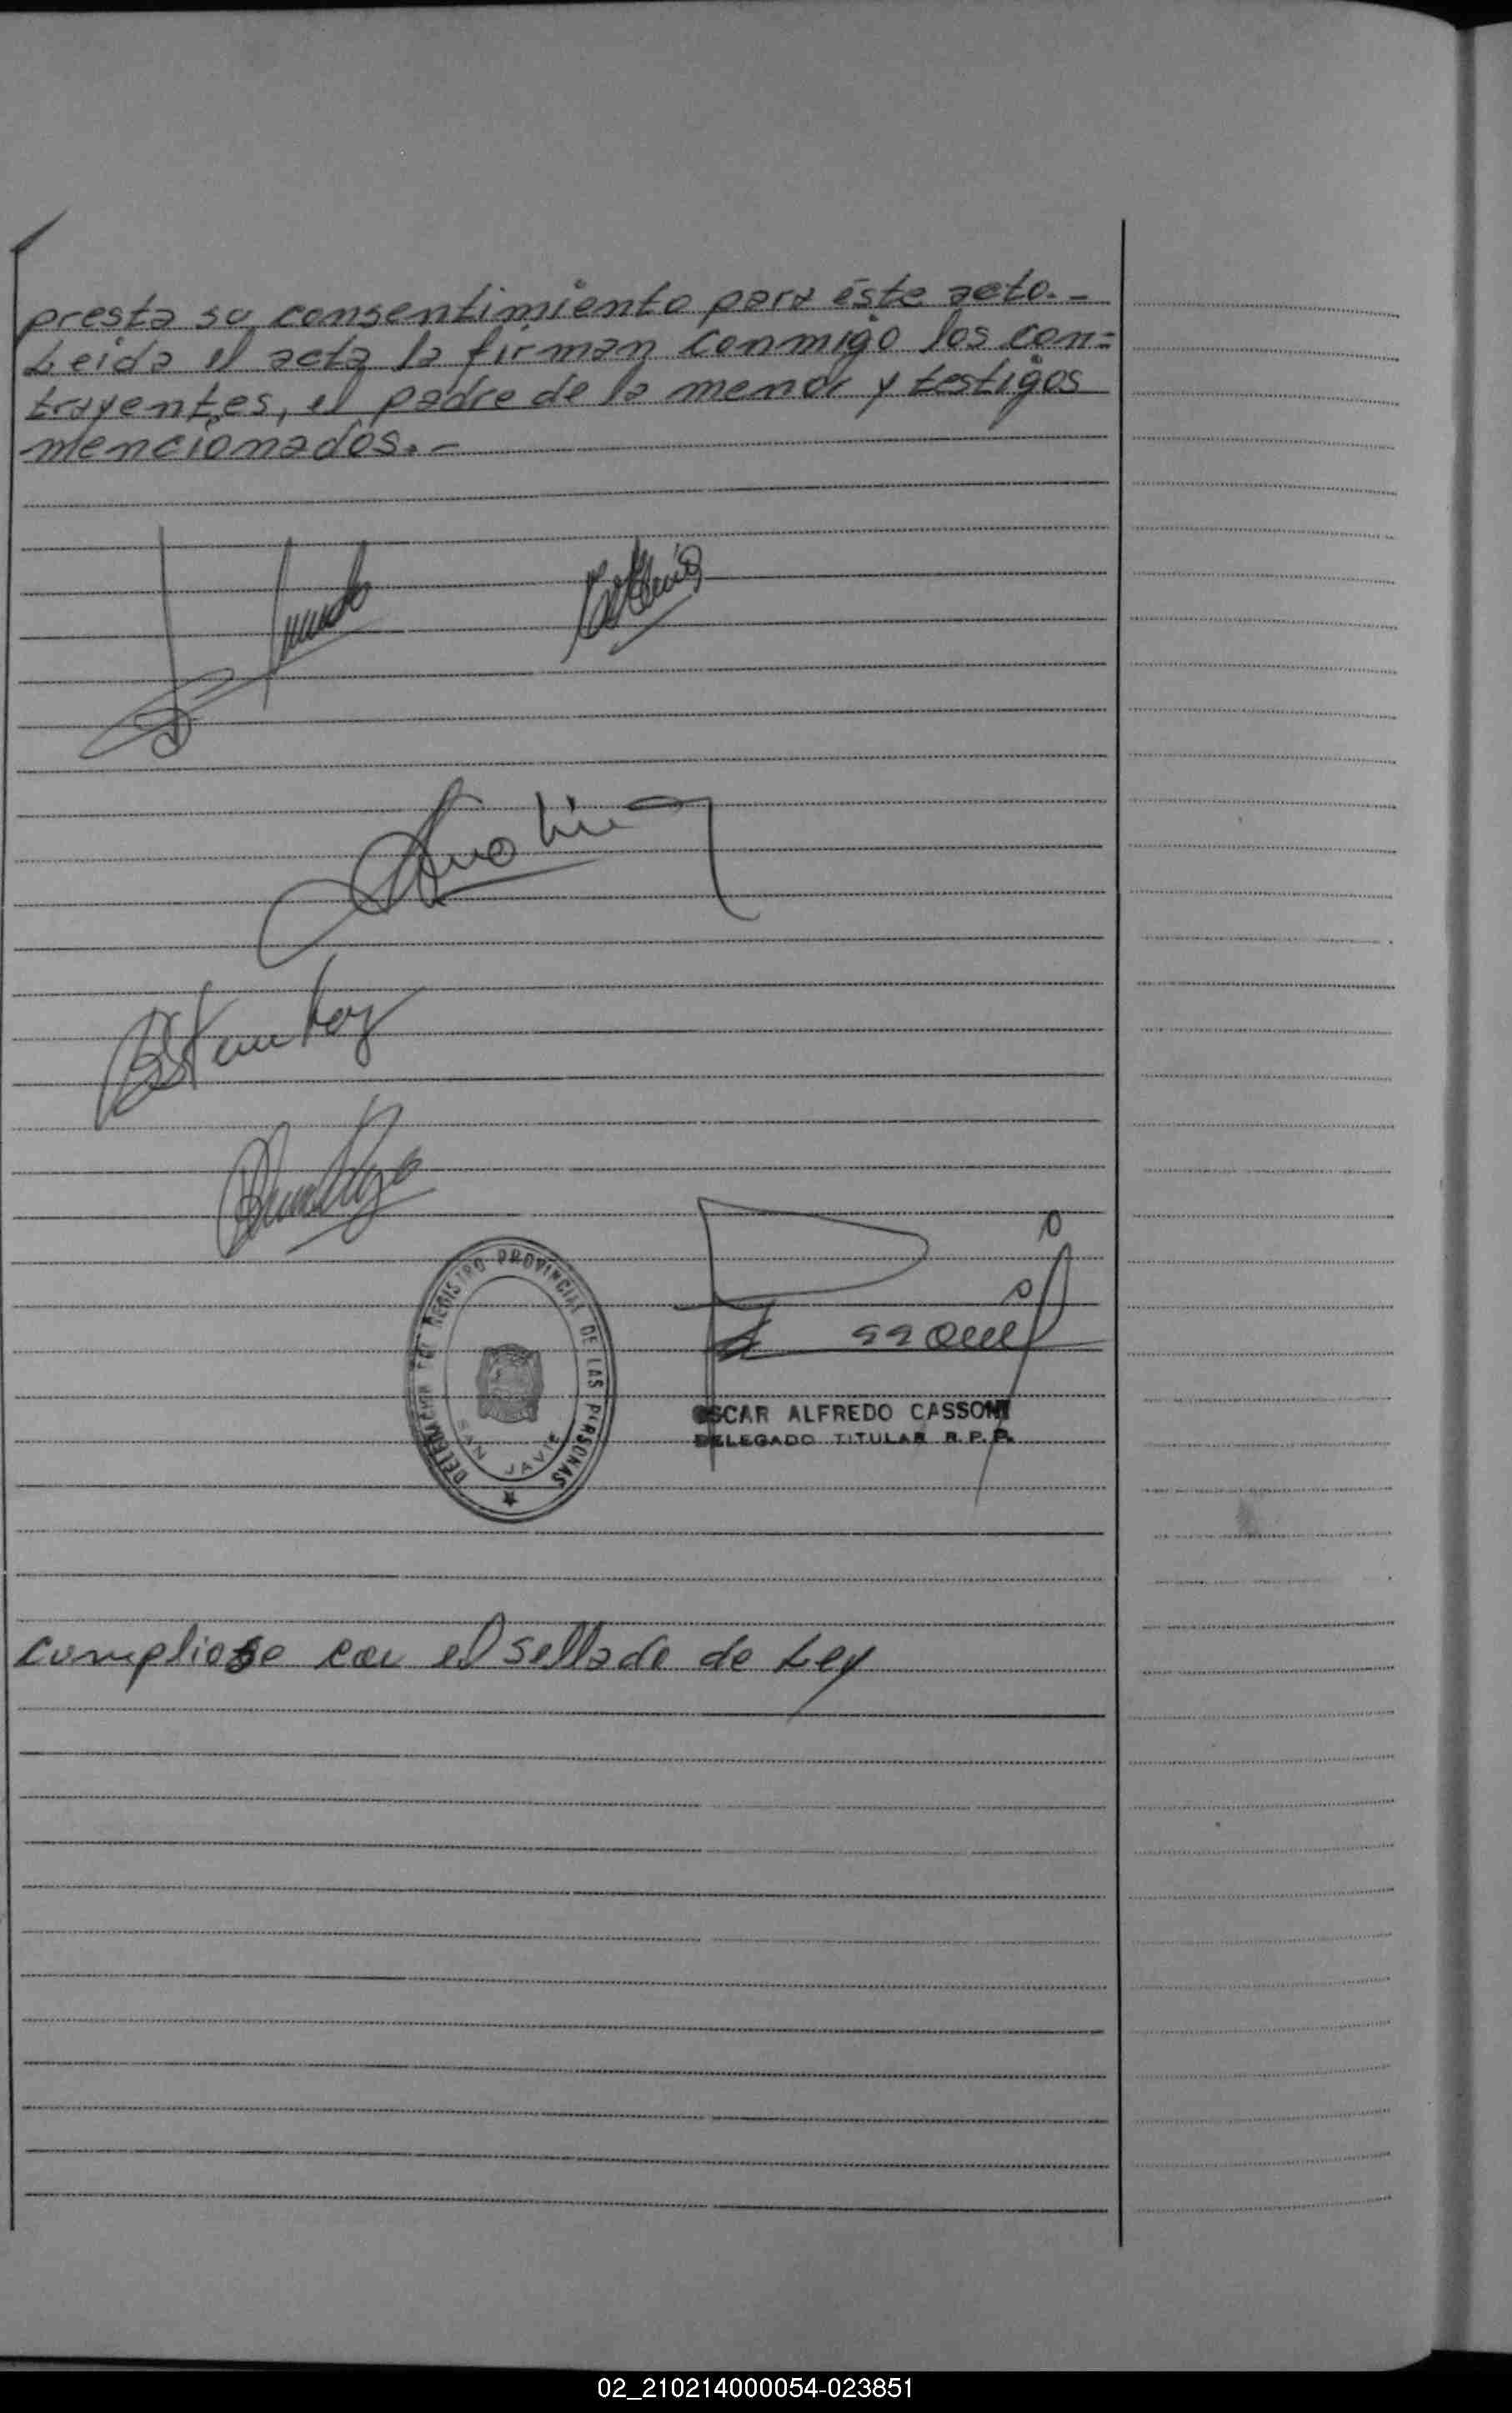 presta su consentimiento para éste acto.-
Leida el acta la firman conmigo los con=
trayentes, el padre de la menor y testigos
mencionados.-
DELEGACION DEL REGISTRO PROVINCIAL DE LAS PERSONAS
SAN JAVIER
OSCAR ALFREDO CASSONI
DELEGADO TITULAR R.P.P.
cumpliose con el sellado de Ley
02_210214000054-023851